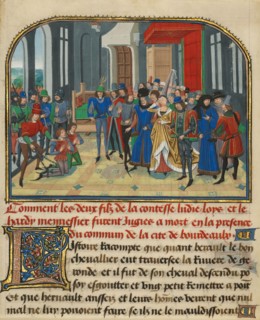 Comment les deux filz de la contesse ludie loys et le
hardy menessier furent Jugies a mort en la presence
du commun de la cite de bourdeaulx
Istoire racompte que quant herault le bon
chevallier eut traverse la riviere de ge
ronde et il fut de son cheval descendu po
soy esgoutter et ung petit remettre a point
Et que hernault ansseis et leurs hommes veirent que nul
mal ne luy pouoient faire se ilz ne le mauldissoient